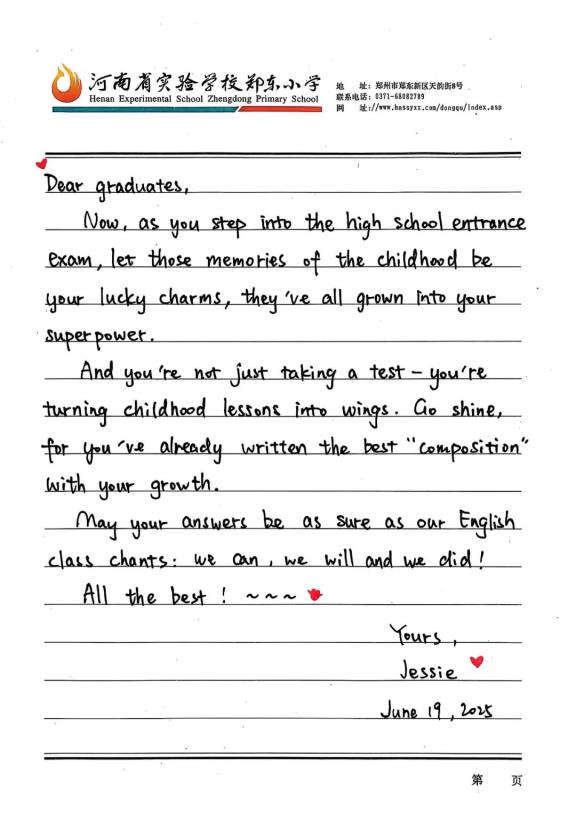 河南省实验学校郑东小学
Henan Experimental School Zhengdong Primary School
地 址：郑州市郑东新区天韵街8号
联系电话：0371-68082789
网 址://www.hnssyxx.com/dongqu/index.asp
Dear graduates,
Now, as you step into the high school entrance
exam, let those memories of the childhood be
your lucky charms, they've all grown into your
superpower.
And you're not just taking a test – you're
turning childhood lessons into wings. Go shine,
for you've already written the best "composition"
with your growth.
May your answers be as sure as our English
class chants: we can, we will and we did!
All the best! ~~~
Yours,
Jessie
June 19, 2025
第 页